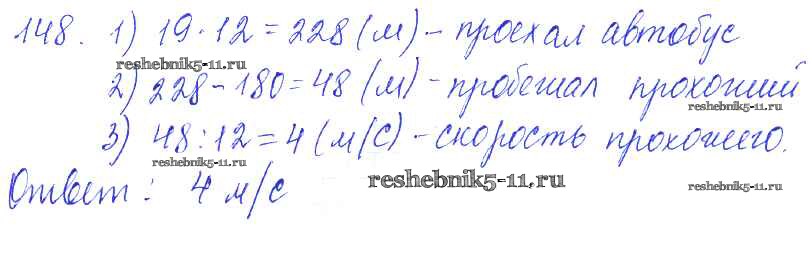 148. 1) 19·12=228 (м) – проехал автобус
reshebnik5-11.ru
2) 228-180=48 (м) – пробежал прохожий
reshebnik5-11.ru
3) 48:12=4 (м/с) – скорость прохожего.
reshebnik5-11.ru
Ответ: 4 м/с
reshebnik5-11.ru
reshebnik5-11.ru